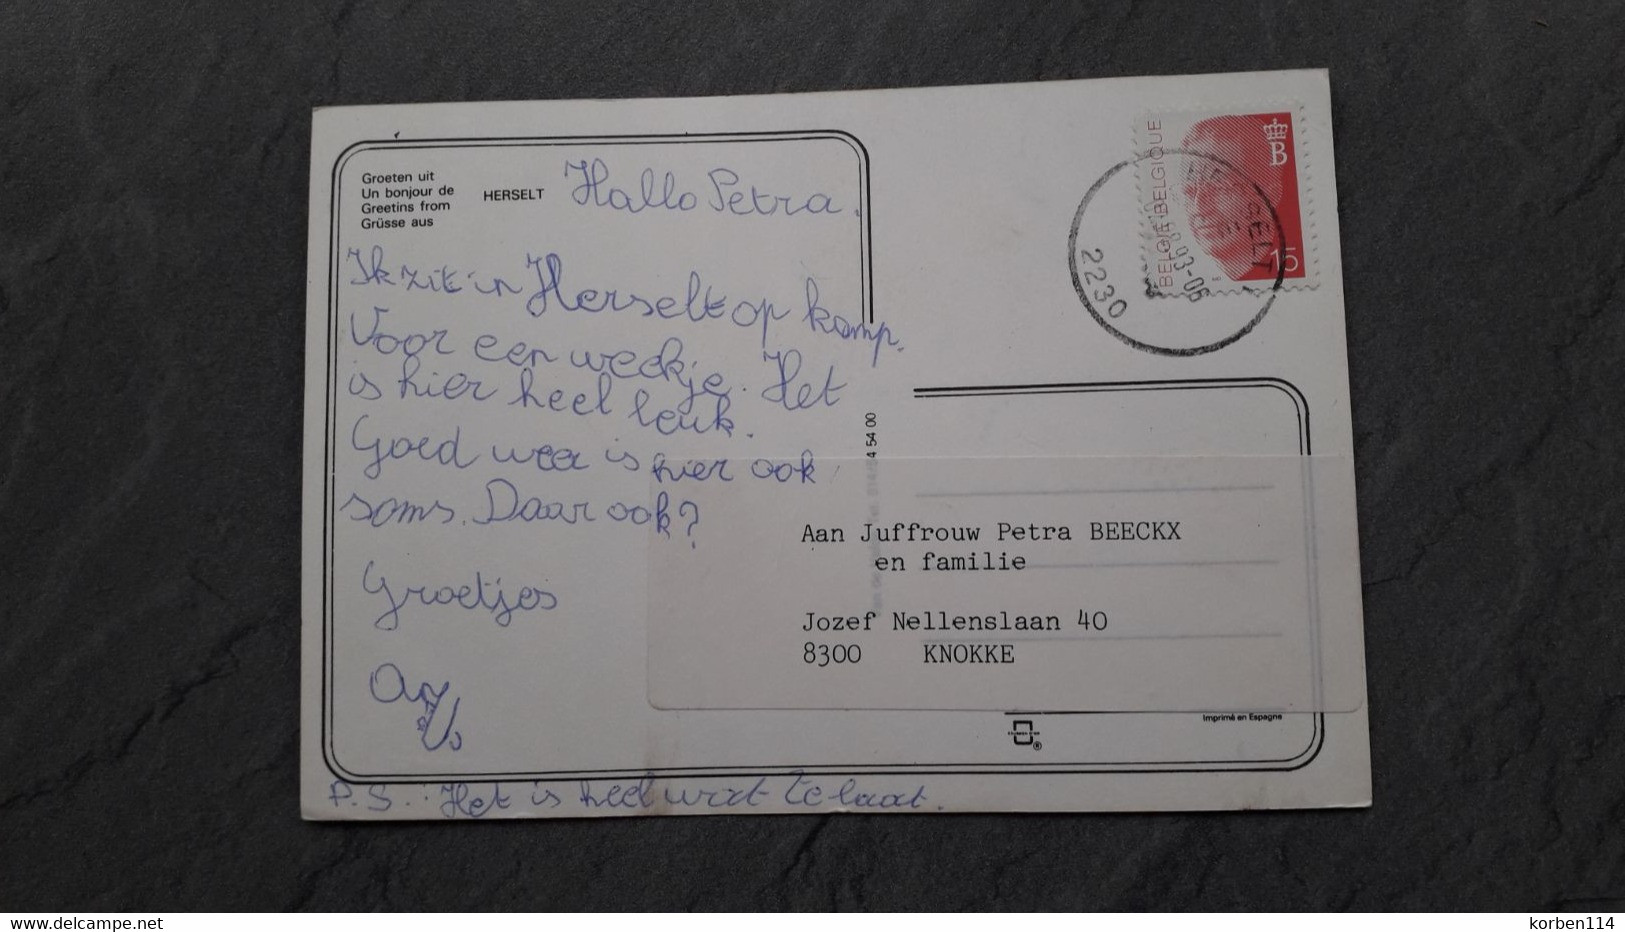 Groeten uit
Un bonjour de
Greetins from
Grüsse aus
HERSELT
Hallo Petra.
Ik zit in Herselt op kamp.
Voor een weekje. Het
is hier heel leuk.
Goed weer is hier ook
soms. Daar ook?
Groetjes
P.S.: Het is heel wat te laat.
BELGIË-BELGIQUE
B
15
2230
4 54 00
Aan Juffrouw Petra BEECKX
en familie
Jozef Nellenslaan 40
8300 KNOKKE
Imprimé en Espagne
®
www.delcampe.net
korben114